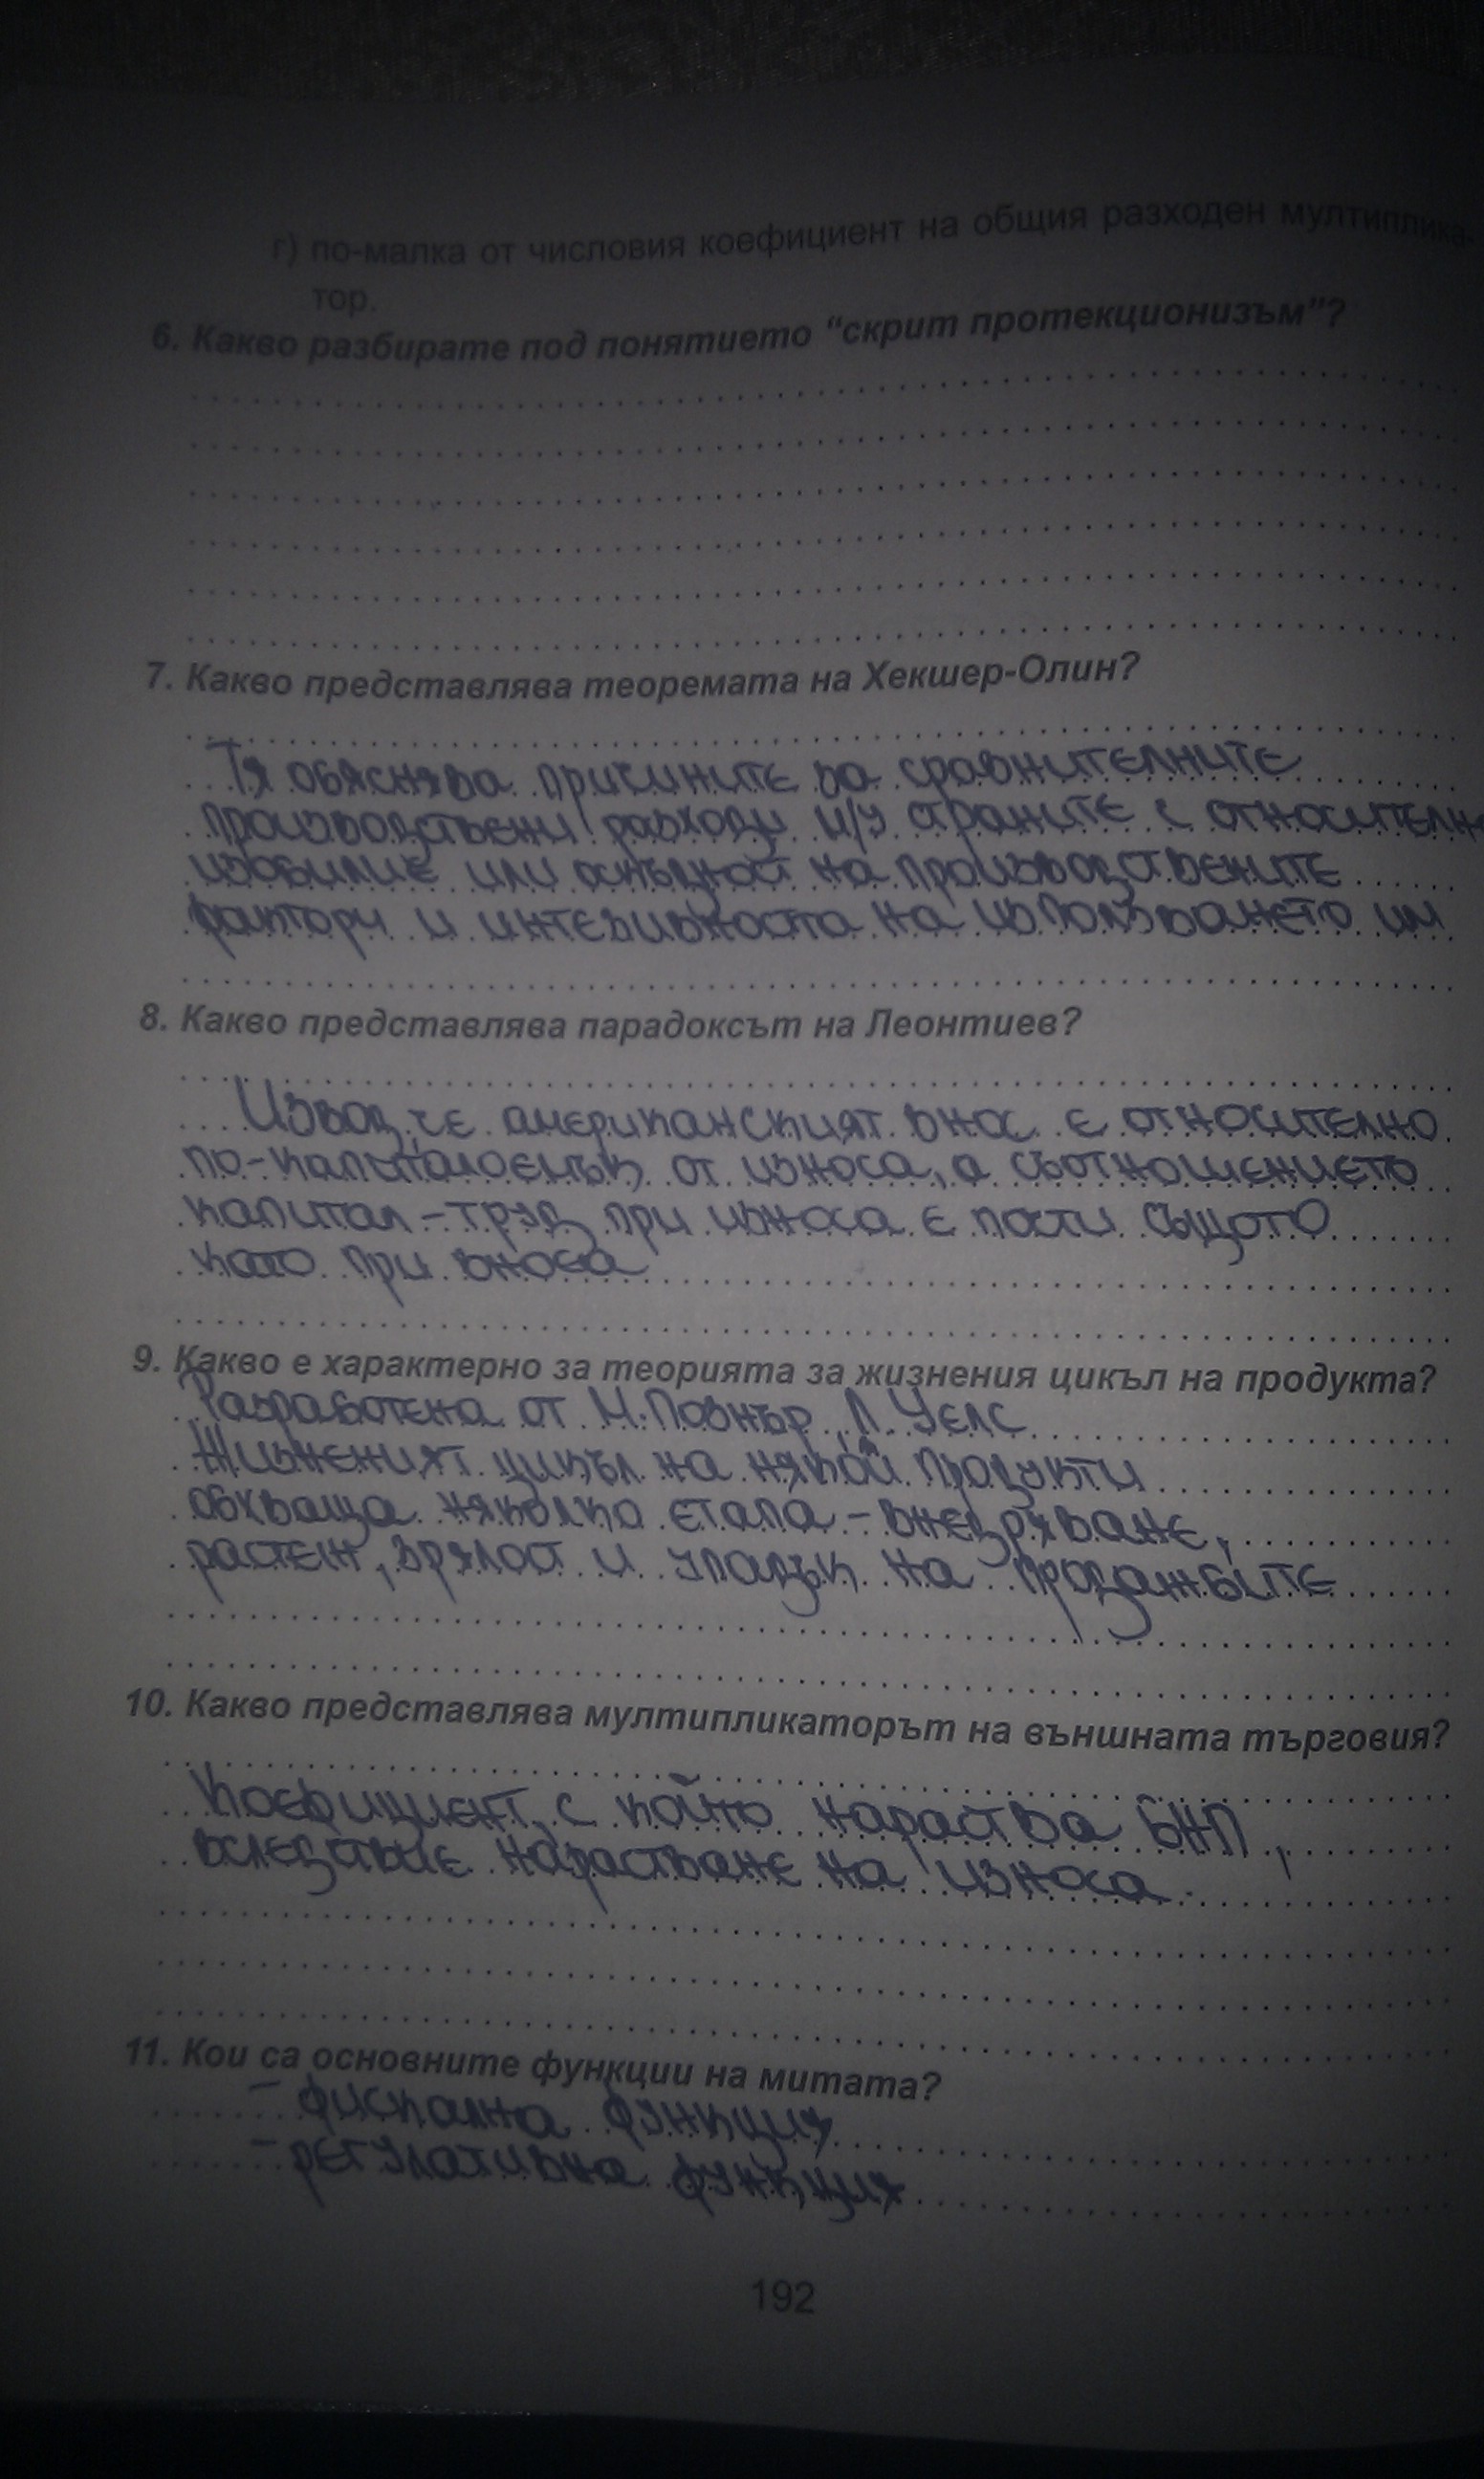 г) по-малка от числовия коефициент на общия разходен мултиплика-
тор.
6. Какво разбирате под понятието “скрит протекционизъм”?
7. Какво представлява теоремата на Хекшер-Олин?
Тя обяснява причините за сравнителните
производствени разходи м/у страните с относителн
изобилие или оскъдност на производствените
фактори и интезивността на използването им
8. Какво представлява парадоксът на Леонтиев?
Извод, че американският внос е относително
по-капиталоемък от износа, а съотношението
капитал-труд при износа е почти същото
като при вноса
9. Какво е характерно за теорията за жизнения цикъл на продукта?
Разработена от М. Познър, Л. Уелс
Жизненият цикъл на някой продукти
обхваща няколко етапа - внедряване,
растеж, зрялост и упадък на продажбите
10. Какво представлява мултипликаторът на външната търговия?
Коефициент, с който нараства БНП,
вследствие нарастване на износа.
11. Кои са основните функции на митата?
- фискална функция
- регулативна функция
192